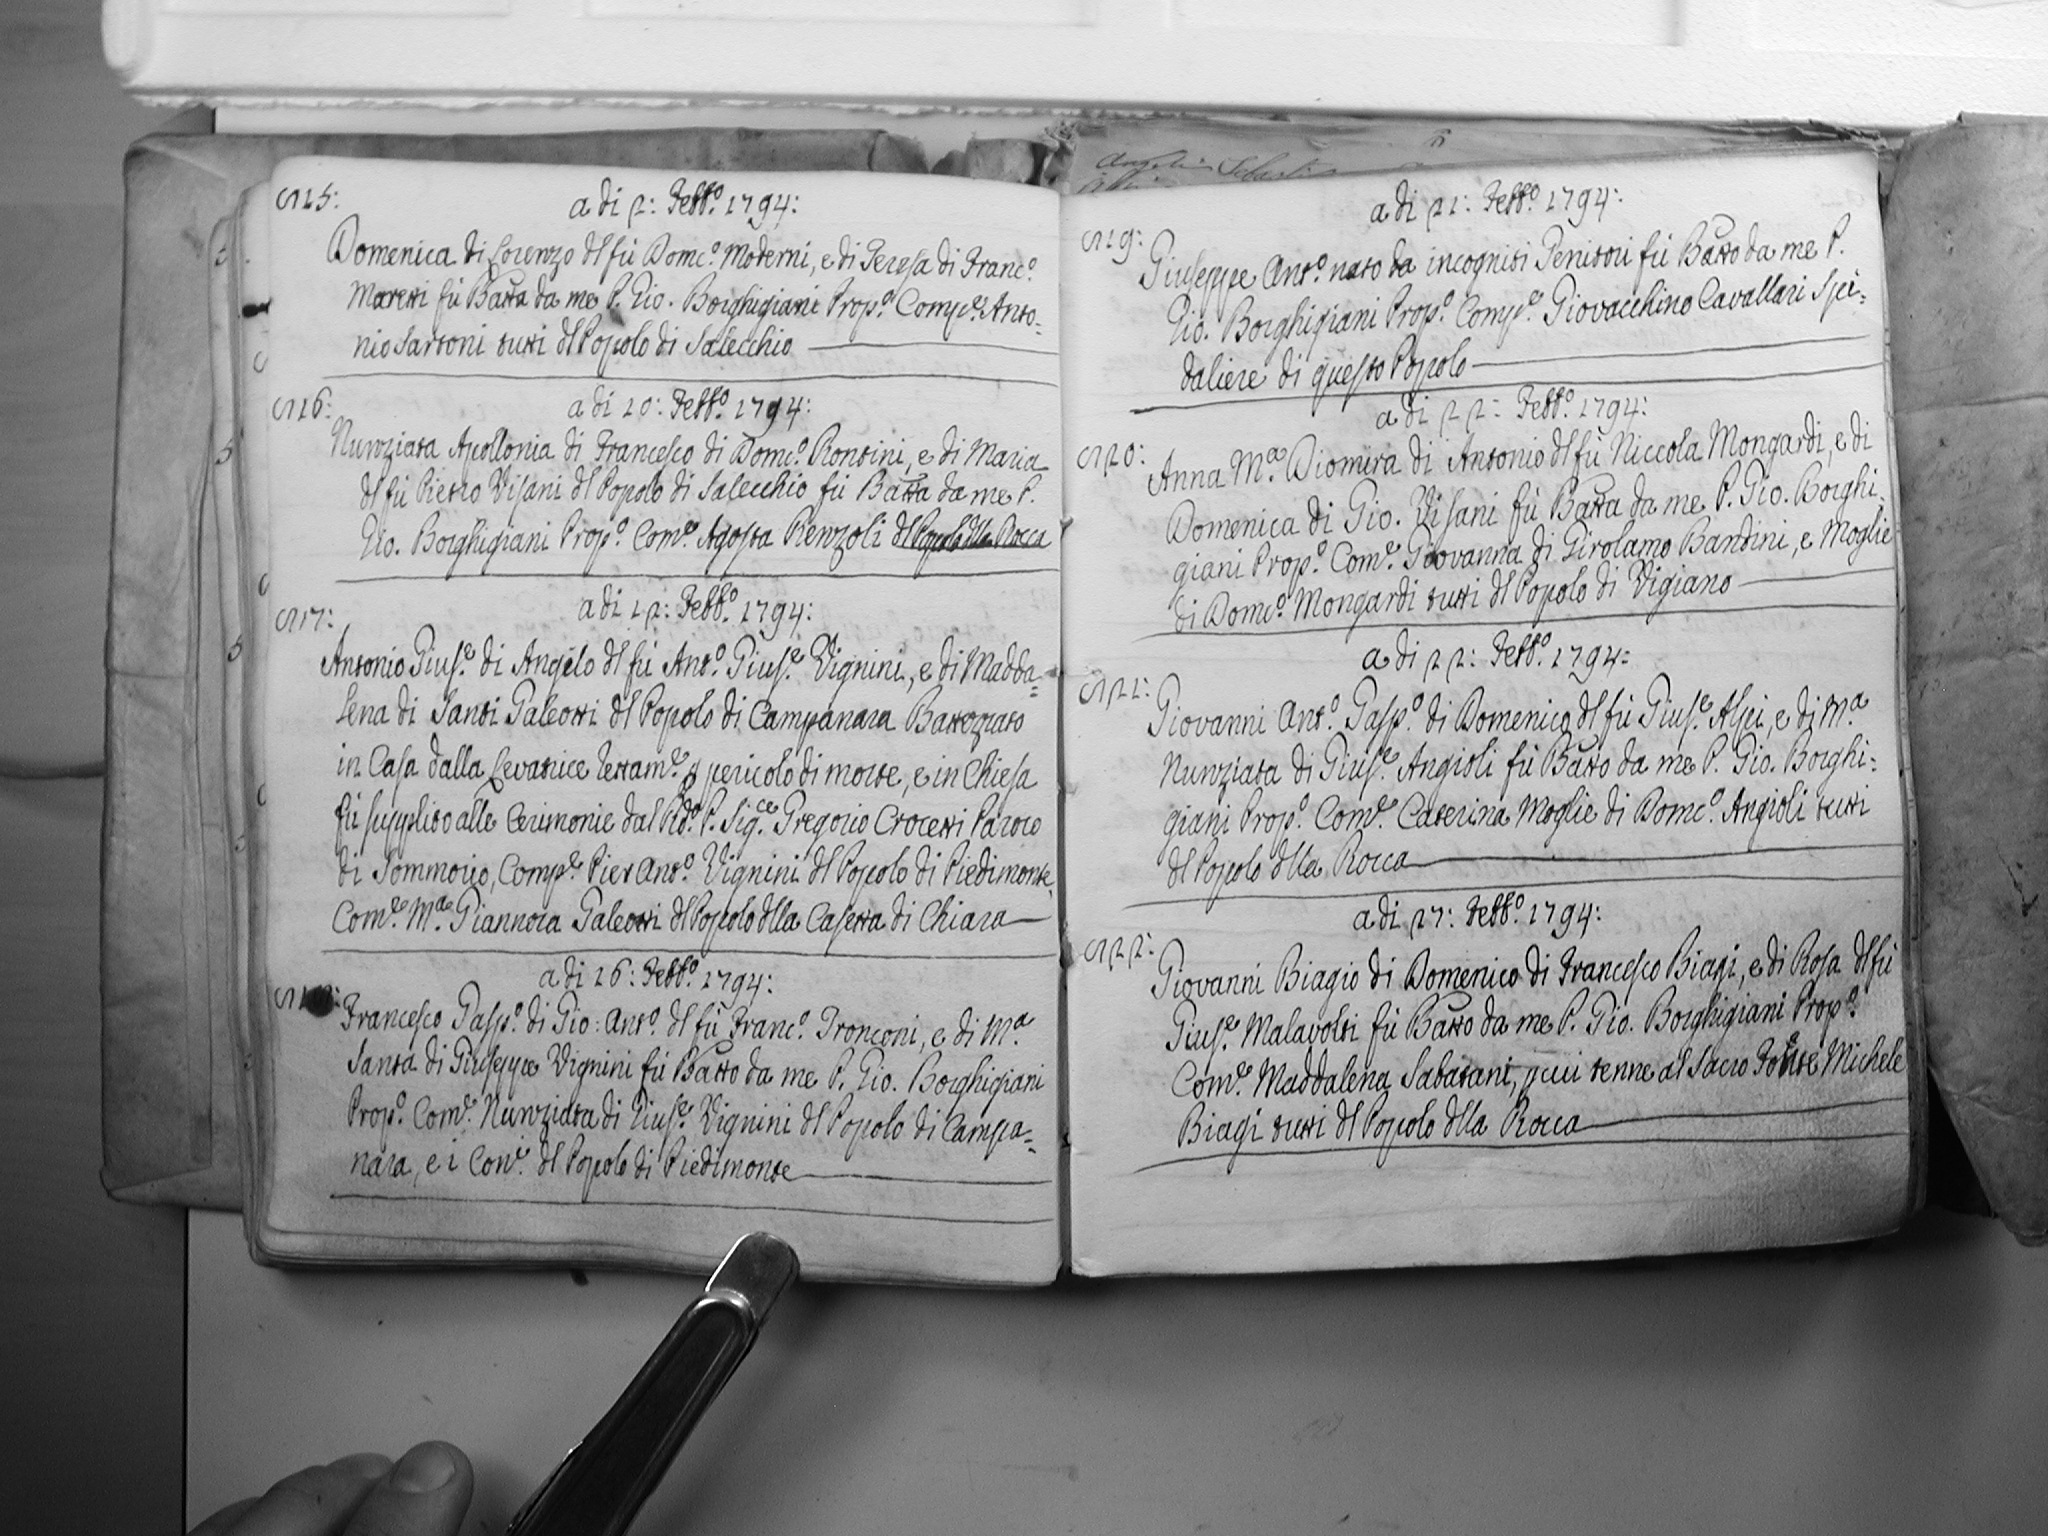 515:
a di 2: Febb.º 1794:
Domenica di Lorenzo dl fù Dom.co Moderni, e di Teresa di Franc.º
Moretti fù Batta da me P. Gio. Borghigiani Prop.º Comp.e Anto-
nio Sartoni tutti dl Popolo di Salecchio
516:
a di 10: Febb.º 1794:
Nunziata Apollonia di Francesco di Dom.co Rontini, e di Maria
dl fù Pietro Visani dl Popolo di Salecchio fù Batta da me P.
Gio. Borghigiani Prop.º Com.e Agosta Renzoli dl Popolo dlla Rocca
517:
a di 12: Febb.º 1794:
Antonio Gius.e di Angelo dl fù Ant.º Gius.e Vignini, e di Madda-
lena di Santi Galeotti dl Popolo di Campanara Battezzato
in Casa dalla Levatrice p pericolo di morte, e in Chiesa
fù supplito alle Cerimonie dal Rd.º P. Sig.re Gregorio Crocetti Paroco
di Sommorio, Comp.e Pier Ant.º Vignini dl Popolo di Piedimonte,
Com.e M.a Giannora Galeotti dl Popolo dlla Casetta di Chiara
a di 16: Febb.º 1794:
518:
Francesco Gasp.º di Gio: Ant.º dl fù Franc.º Tronconi, e di M.a
Santa di Giuseppe Vignini fù Batto da me P. Gio. Borghigiani
Prop.º Com.e Nunziata di Gius.e Vignini dl Popolo di Campa-
nara, e i Con.i dl Popolo di Piedimonte
a di 21: Febb.º 1794:
519:
Giuseppe Ant.º nato da incogniti Genitori fù Batto da me P.
Gio. Borghigiani Prop.º Comp.e Giovacchino Cavallari Spe-
daliere di questo Popolo
a di 22: Febb.º 1794:
520:
Anna M.a Diomira di Antonio dl fù Niccola Mongardi, e di
Domenica di Gio. Visani fù Batta da me P. Gio. Borghi-
giani Prop.º Com.e Giovanna di Girolamo Bandini, e Moglie
di Dom.co Mongardi tutti dl Popolo di Vigiano
a di 22: Febb.º 1794:
521:
Giovanni Ant.º Gasp.º di Domenico dl fù Gius.e Alpi, e di M.a
Nunziata di Gius.e Angioli fù Batto da me P. Gio. Borghi-
giani Prop.º Com.e Caterina Moglie di Dom.co Angioli tutti
dl Popolo dlla Rocca
a di 27: Febb.º 1794:
522:
Giovanni Biagio di Domenico di Francesco Biagi, e di Rosa dl fù
Gius.e Malavolti fù Batto da me P. Gio. Borghigiani Prop.º
Com.e Maddalena Sabatani, p cui tenne al Sacro Fonte Michele
Biagi tutti dl Popolo dlla Rocca